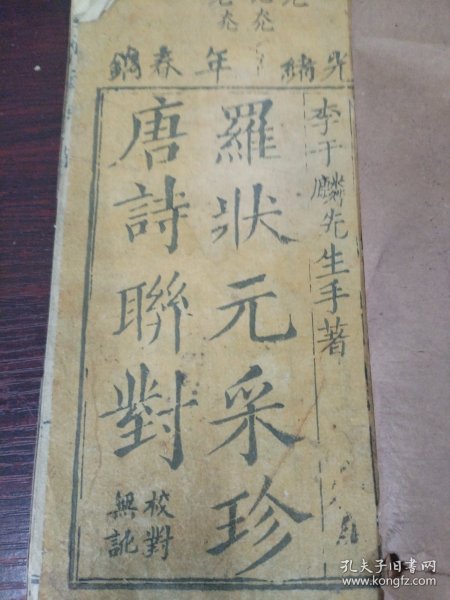 光緒年春鐫
李于麟先生手著
羅狀元采珍
唐詩聯對
校對
無訛
孔夫子旧书网
www.kongfz.com